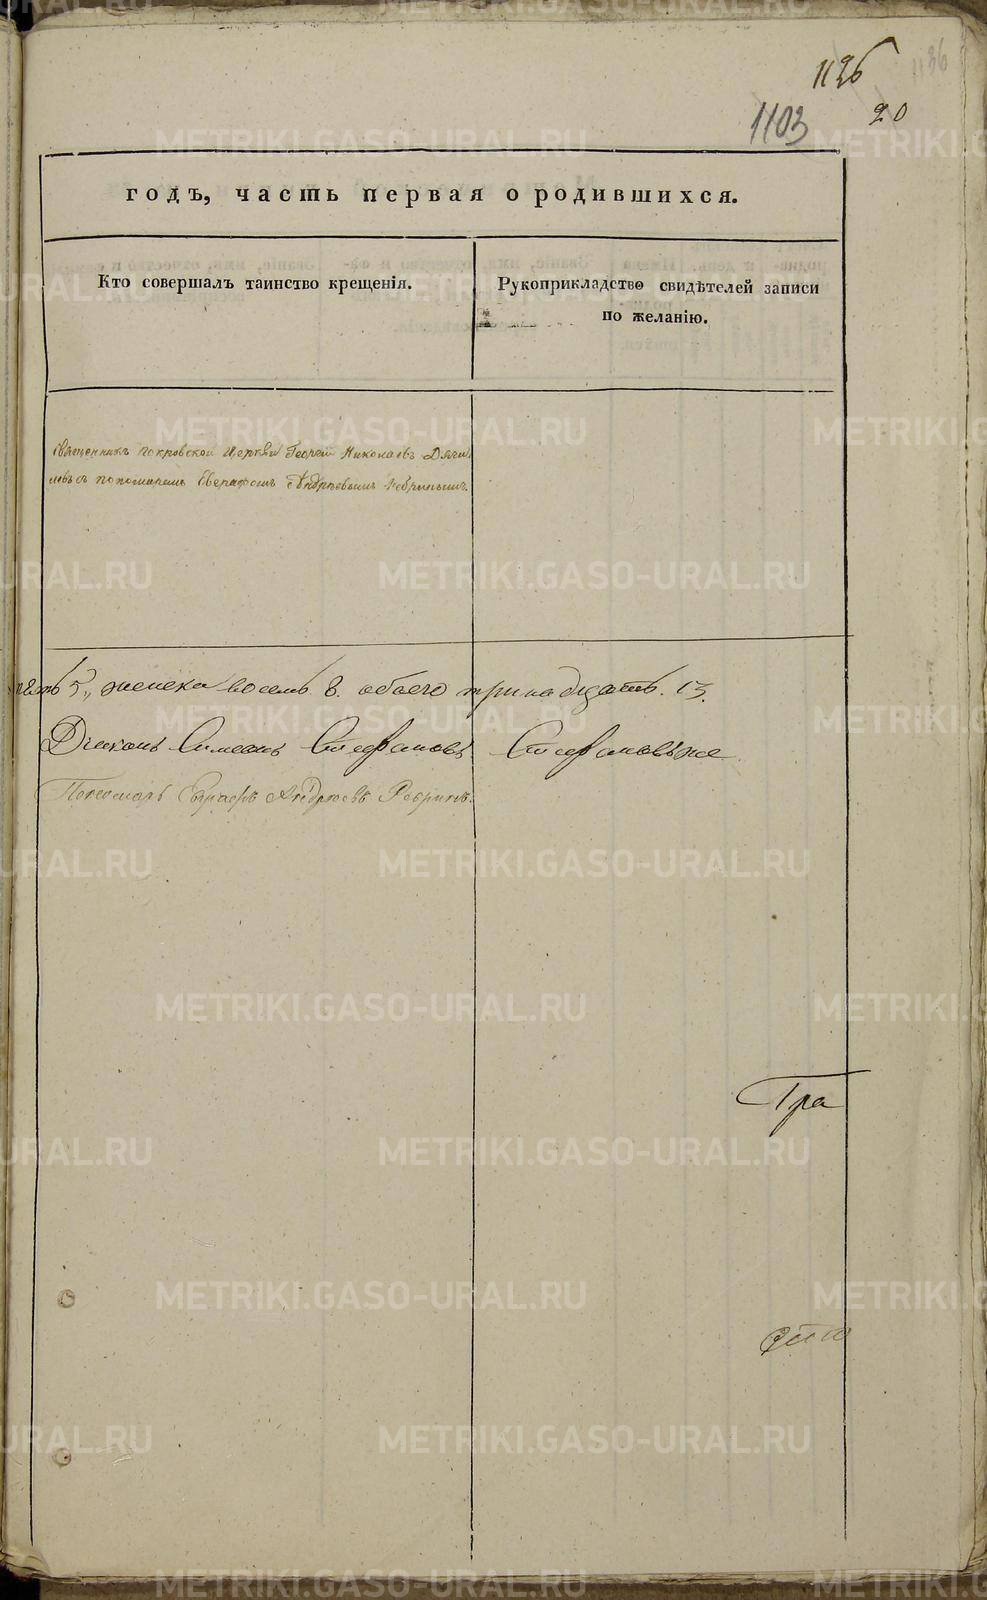 1126
1103 20
годъ, часть первая о родившихся.
Кто совершалъ таинство крещенія.
Рукоприкладство свидѣтелей записи
по желанію.
Священникъ Покровской Церкви Георгій Николаевъ Дяги
левъ съ пономаремъ Евграфомъ Андрѣевымъ Ребринымъ.
пять 5., женска восемь 8. обоего тринадцать. 13.
Діаконъ Симеонъ Стефановъ Стефановъже
Пономарь Евграфъ Андреевъ Ребринъ.
Гра
METRIKI.GASO-URAL.RU